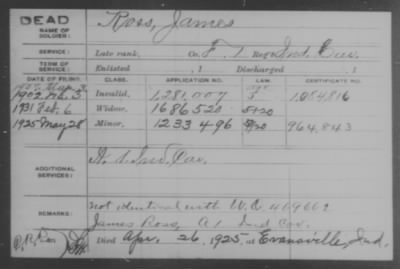 DEAD
NAME OF SOLDIER: Ross, James
SERVICE: Late rank, Co. F, 1 Reg't Ind. Cav.
TERM OF SERVICE: Enlisted , 1 Discharged , 1
DATE OF FILING. CLASS. APPLICATION NO. LAW. CERTIFICATE NO.
1902 Invalid, 1,281,007 1,054,816
1931 Feb. 6 Widow, 1686520 5+20
1925 May 28 Minor, 1233496 5/20 964,843
ADDITIONAL SERVICES: Ind. Cav.
REMARKS: not identical with W.C.
James Ross, A 1 Ind Cav.
Died Apr. 26, 1925, at Evansville, Ind.